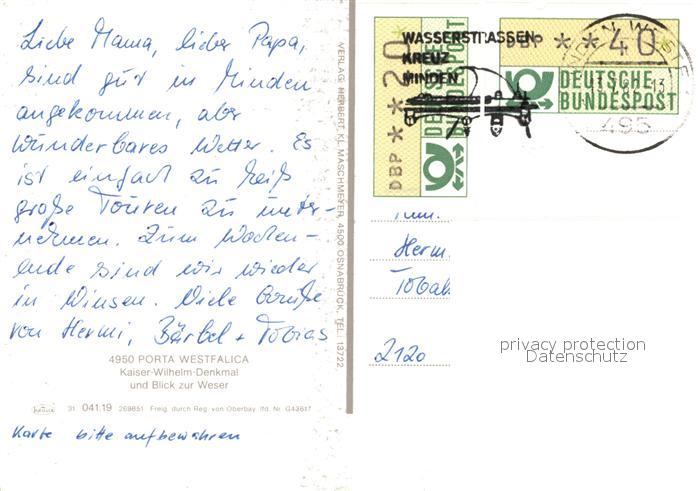 Liebe Mama, lieber Papa,
sind gut in Minden
angekommen, aber
wunderbares Wetter. Es
ist einfach zu heiß
große Touren zu unter-
nehmen. Zum Wochen-
ende sind wir wieder
in Winsen. Viele Grüße
von Hermi, Bärbel + Tobias
4950 PORTA WESTFALICA
Kaiser-Wilhelm-Denkmal
und Blick zur Weser
krüger 31 041.19 269851 Freig. durch Reg. von Oberbay. lfd. Nr. G43617
Karte bitte aufbewahren
VERLAG HERBERT KL. MASCHMEYER, 4500 OSNABRÜCK, TEL. 13722
WASSERSTRASSEN-
KREUZ
MINDEN
DBP * * 20
DEUTSCHE
BUNDESPOST
DBP * * 40
DEUTSCHE
BUNDESPOST
495
Herm.
Tobak
2120
privacy protection
Datenschutz